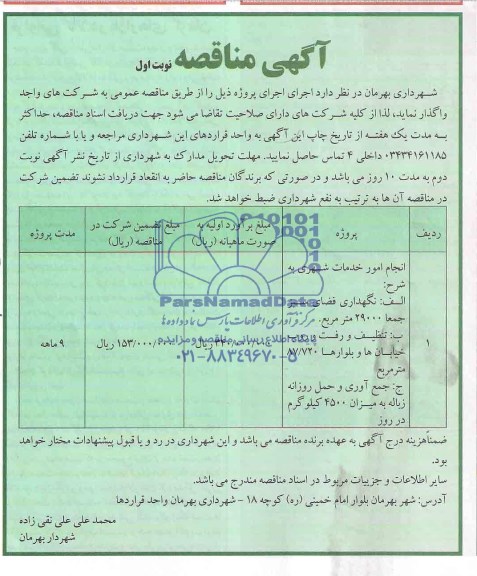 آگهی مناقصه نوبت اول
شهرداری بهرمان در نظر دارد اجرای اجرای پروژه ذیل را از طریق مناقصه عمومی به شرکت های واجد
واگذار نماید، لذا از کلیه شرکت های دارای صلاحیت تقاضا می شود جهت دریافت اسناد مناقصه، حداکثر
به مدت یک هفته از تاریخ چاپ این آگهی به واحد قراردهای این شهرداری مراجعه و یا با شماره تلفن
۰۳۴۳۴۱۶۱۱۸۵ داخلی ۴ تماس حاصل نمایید. مهلت تحویل مدارک به شهرداری از تاریخ نشر آگهی نوبت
دوم به مدت ۱۰ روز می باشد و در صورتی که برندگان مناقصه حاضر به انعقاد قرارداد نشوند تضمین شرکت
در مناقصه آن ها به ترتیب به نفع شهرداری ضبط خواهد شد.
ردیف پروژه مبلغ برآورد اولیه به صورت ماهیانه (ریال) مبلغ تضمین شرکت در مناقصه (ریال) مدت پروژه
۱
انجام امور خدمات شهری به
شرح:
الف: نگهداری فضای سبز
جمعا ۲۹۰۰۰ متر مربع.
ب: تنظیف و رفت و روب
خیابان ها و بلوارها ۸۷/۷۲۰
مترمربع
ج: جمع آوری و حمل روزانه
زباله به میزان ۴۵۰۰ کیلوگرم
در روز
ریال
ریال
۹ ماهه
ParsNamadData
مرکز فرآوری اطلاعات پارس نماد داده ها
پایگاه اطلاع رسانی مناقصه و مزایده
۰۲۱-۸۸۳۴۹۶۷۰-۵
ضمناًهزینه درج آگهی به عهده برنده مناقصه می باشد و این شهرداری در رد و یا قبول پیشنهادات مختار خواهد
بود.
سایر اطلاعات و جزییات مربوط در اسناد مناقصه مندرج می باشد.
آدرس: شهر بهرمان بلوار امام خمینی (ره) کوچه ۱۸ - شهرداری بهرمان واحد قراردها
محمد علی علی نقی زاده
شهردار بهرمان